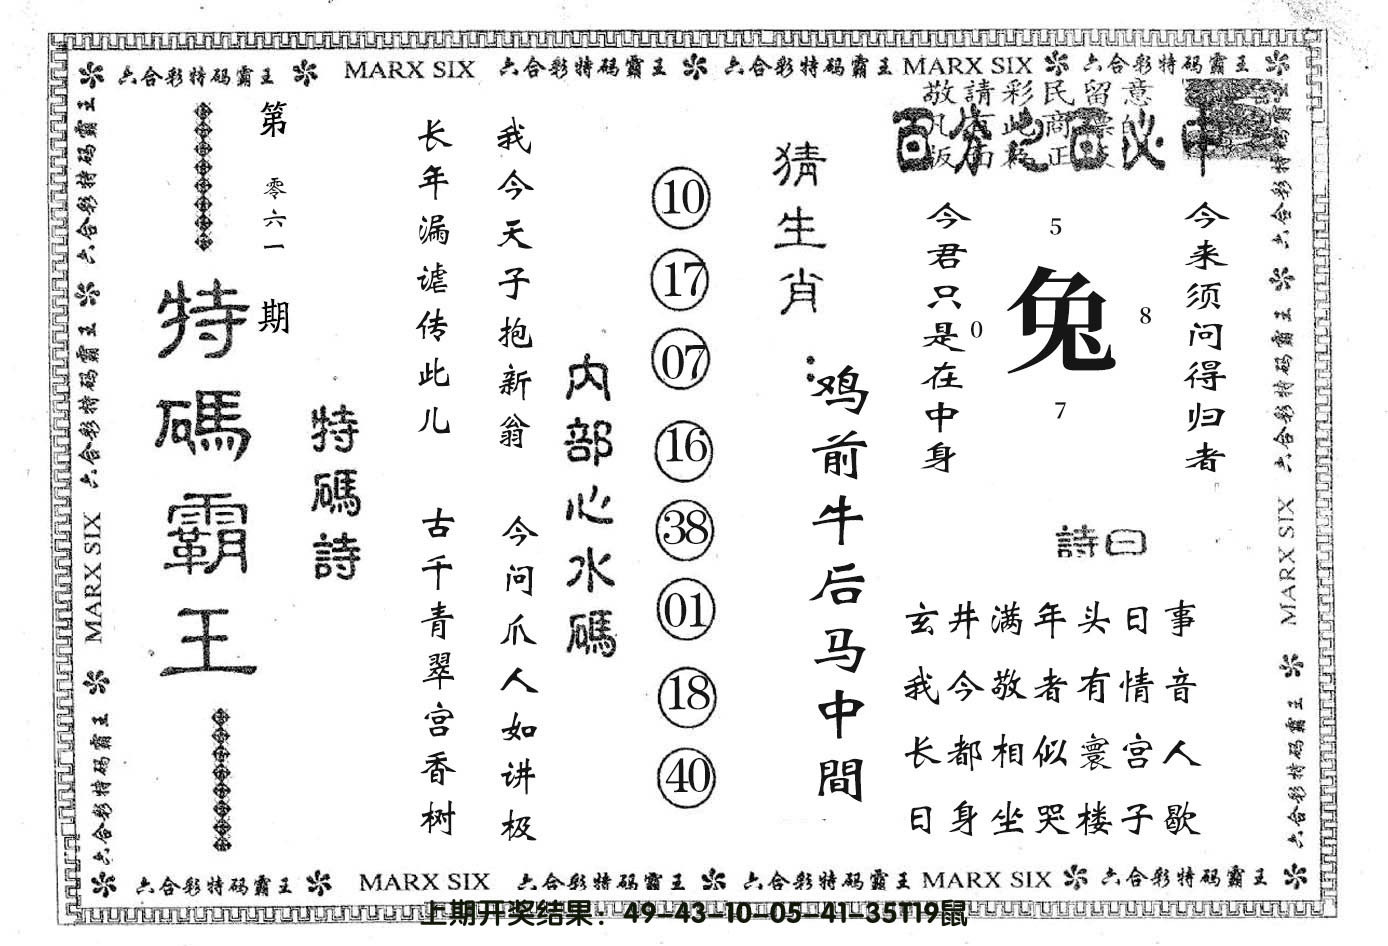 六合彩特码霸王 MARX SIX 六合彩特码霸王 六合彩特码霸王 MARX SIX 六合彩特码霸王
敬請彩民留意
百分之百必中
今来须问得归者
5
0
兔
8
7
今君只是在中身
詩曰
玄井满年头日事
我今敬者有情音
长都相似寰宫人
日身坐哭楼子歇
猜生肖:
鸡前牛后马中間
10
17
07
16
38
01
18
40
内部心水碼
我今天子抱新翁
今问爪人如讲极
长年漏谑传此儿
古千青翠宫香树
特碼詩
第零六一期
特碼霸王
六合彩特码霸王 六合彩特码霸王 MARX SIX 六合彩特码霸王
六合彩特码霸王 六合彩特码霸王 MARX SIX 六合彩特码霸王
六合彩特码霸王 MARX SIX 六合彩特码霸王 六合彩特码霸王 MARX SIX 六合彩特码霸王
上期开奖结果：49-43-10-05-41-35T19鼠